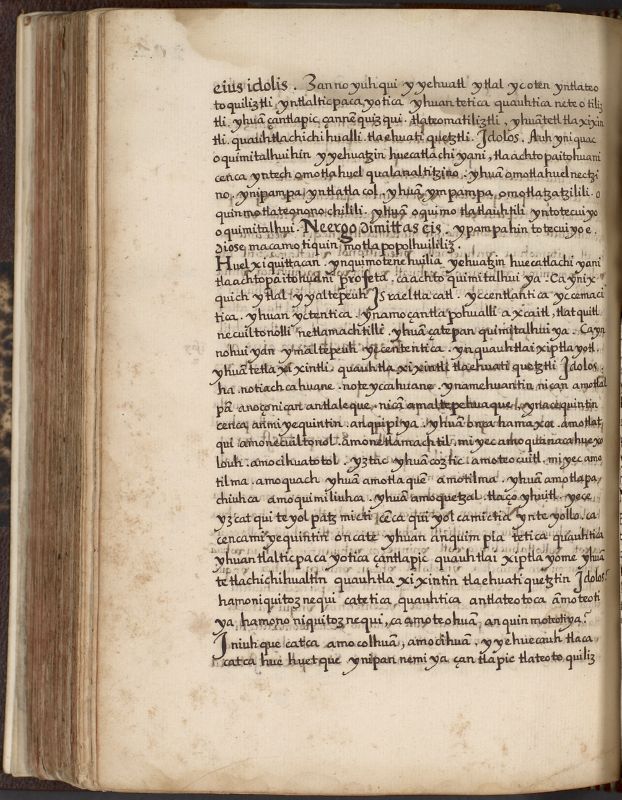 eius idolis. Zan no yuh qui y yehuatl ytlal ycoten yntlateo
toquiliztli, yntlalticpaca yotica yhuan tetica quauhtica nete o tiliz
tli. yhuā çantlapic, çannē quizqui. tlateomatiliztli, yhuā tetl tla xixin
tli. quauhtlachichihualli. tlaehuatiquetztli. Idolos. Auh yniquac
oquimitalhui hin yyehuatzin huecatlachiyani, tlaachtopaitohuani
cenca yntech omotlahuel qualanaltitzino, yhuā omotlahuel nectzi
no, ynipampa yntlatlacol, yhuā ympampa, omotlatzatzilili. o
quinmotlateqnonochilili. yhuā oquimo tlatlauhtili yntotecuiyo
oquimitalhui. Ne ergo dimittas eis. ypampa hin totecuiyo e.
Diose macamo tiquinmotlapopolhuililiz.
Huel xiquittacan, ynquimotenehuilia yehuatzin huecatlachiyani
tlaachtopaitohuani profeta. ca achto quimitalhui ya. Ca ynix
quich ytlal yyaltepeuh Israel tlacatl. yccentlantica yccemaci
tica, yhuan yctentica, ynamo çantlapohualli axcaitl, tlatquitl
necuiltonolli netlamachtilli. yhuā çatepan quimitalhui ya. Ca yn
nohuiyan ymaltepeuh yctentica, ynquauhtlaixiptlayotl,
yhuā tetlaxaxintli, quauhtlaxixintli tlaehuatiquetztli Idolos.
ha notiachcahuane. noteyccahuane, ynamehuantin nican amotlal
pā anoçonican antlaleque, nicā amaltepehuaque, ynacequintin
cenca anmiyequintin anqpipiya, yhuā amotlat
qui amonecuiltonol. amonetlamachtil. miyec amoquanacahueyo
louh, amocihuatotol. yztac yhuā coztic amoteocuitl. miyec amo
tilma, amoquach yhuā amotlaquē amotilma, yhuā amotlapa,
chiuhca amoquimiliuhca. yhuā amoquetzal tlaçoyhuitl. yece
yzcatqui teyolpatzmicti cēca qui yolcamictia ynteyollo. ca
cencamiyequintin oncate yhuan anquimpia tetica quauhtica
yhuan tlalticpacayotica çantlapic quauhtlaixiptlayome yhuā
tetlachichihualtin quauhtlaxixintin tlaehuatiquetztin Idolos?
hamoniquitoznequi catetica, quauhtica antlateotoca āmoteoti
ya, hamono niquitoznequi, ca amoteohuā, anquinmotiya?
Iniuhque catca amocolhuā, amocihuā, yyehuecauh tlaca
catca hue huetque ynipan nemiya çantlapic tlateotoquiliz